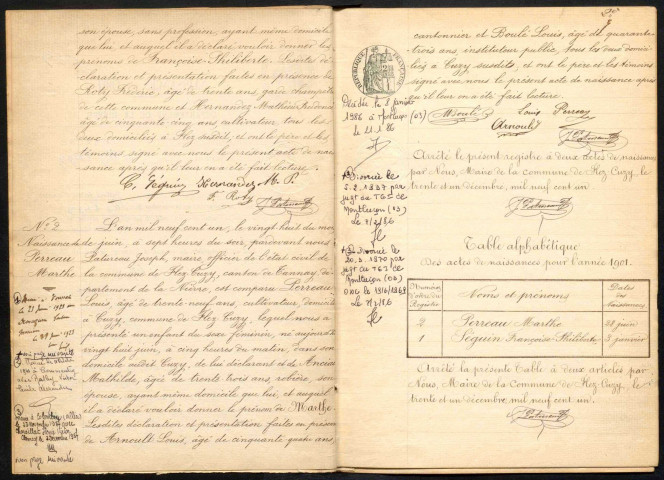 son épouse, sans profession, ayant même domicile
que lui et auquel il a déclaré vouloir donner les
prénoms de Françoise-Philiberte. Lesdites dé-
claration et présentation faites en présence de
Roty Frédéric, âgé de trente ans, garde champêtre
de cette commune et Hernandez Mathieu
âgé de cinquante cinq ans cultivateur tous les
deux domiciliés à Flez susdit, et ont le père et les
témoins signé avec nous le présent acte de nais-
sance après qu'il leur en a été fait lecture.
C. Séguin Hernandez M. P.
F. Roty
N° 2
Naissance de
Perreau
Marthe
L'an mil neuf cent un, le vingt huit du mois
de juin, à sept heures du soir, pardevant nous
Patureau Joseph, maire, officier de l'état civil de
la commune de Flez Cuzy, canton de Tannay, dé-
partement de la Nièvre, est comparu Perreau
Louis, âgé de trente neuf ans, cultivateur domicilié
à Cuzy, commune de Flez Cuzy, lequel nous a
présenté un enfant du sexe féminin, né aujourd'hui
vingt huit juin, à cinq heures du matin, dans son
domicile audit Cuzy, de lui déclarant et de
Mathilde, âgée de trente trois ans, son
épouse, ayant même domicile que lui, et auquel
il a déclaré vouloir donner le prénom de Marthe.
Lesdites déclaration et présentation faites en présence
de Arnoult Louis, âgé de cinquante quatre ans,
cantonnier et Boulé Louis, âgé de quarante
trois ans, instituteur public, tous les deux domici-
liés à Cuzy susdits, et ont le père et les témoins
signé avec nous le présent acte de naissance après
qu'il leur en a été fait lecture.
RÉPUBLIQUE FRANÇAISE
Décédée le 8 janvier
1986 à Montluçon (03)
le 21.1.86
Boulé Louis Perreau
Arnoult
Divorcée le
par
jugt du TGI de
Montluçon (03)
Le 7/2/86
Divorcée le
20.3.1970 par
jugt du TGI de
Montluçon (03)
Le 7/2/86
Arrêté le présent registre à deux actes de naissances
par Nous, Maire de la commune de Flez Cuzy, le
trente et un décembre, mil neuf cent un.
Table alphabétique
Des actes de naissances pour l'année 1901.
Numéros d'ordre du Registre
Noms et prénoms
Dates des Naissances
2 Perreau Marthe 28 juin
1 Séguin Françoise-Philiberte 3 janvier
Arrêté la présente Table à deux articles par
Nous, Maire de la Commune de Flez Cuzy, le
trente et un décembre mil neuf cent un.